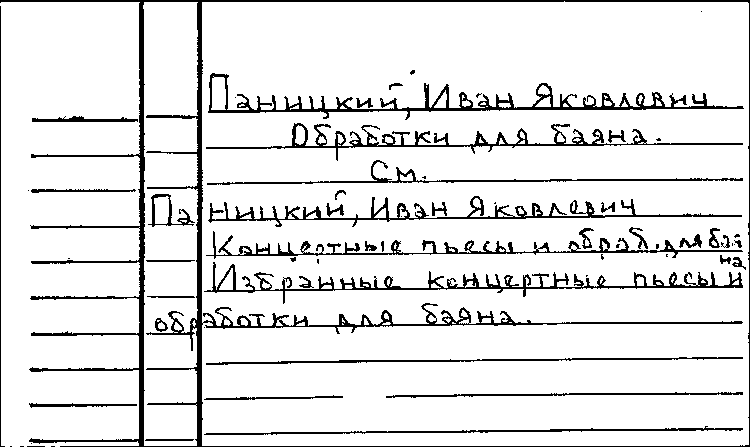 Паницкий, Иван Яковлевич
Обработки для баяна.
См.
Паницкий, Иван Яковлевич
Концертные пьесы и обраб. для бая
на
Избранные концертные пьесы и
обработки для баяна.